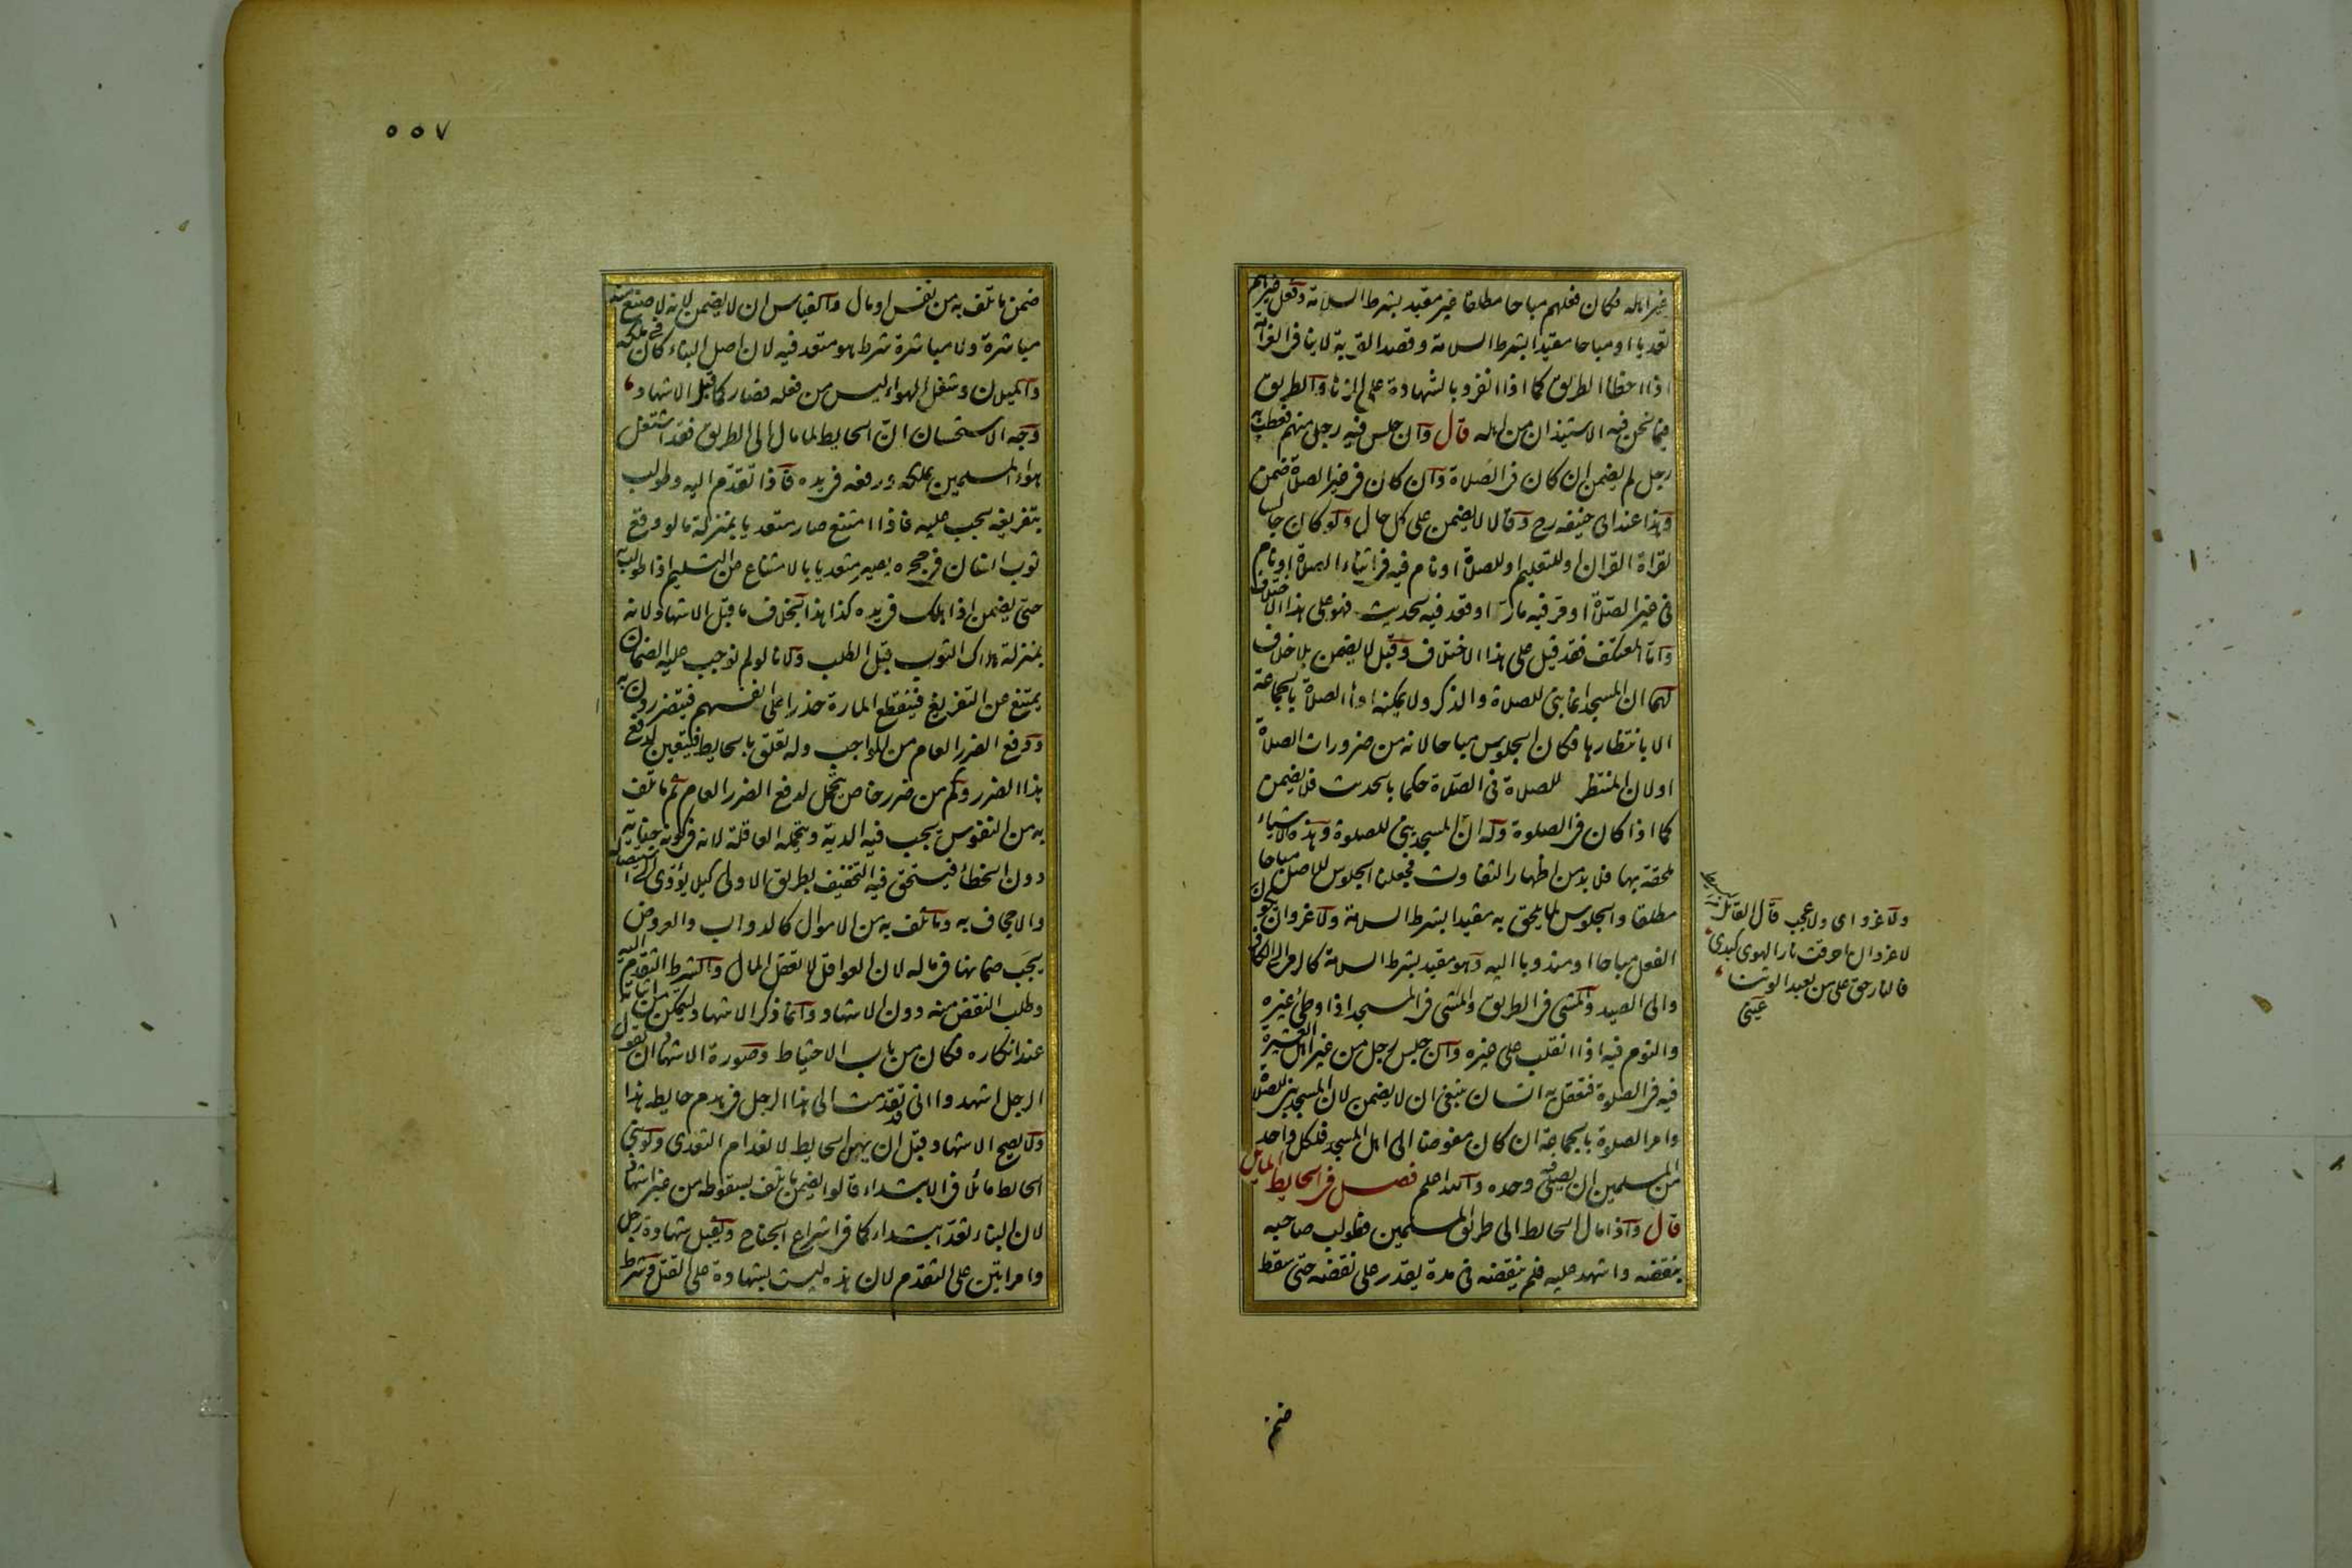 غير اهله فكان فعلهم مباحا مطلقا غير مقيد بشرط السلامة وفعل غيرهم
تعديا او مباحا مقيدا بشرط السلامة وقصد القربة لا ينافي الغرامة
اذا اخطا الطريق كما اذا انفرد بالشهادة على الزنا والطريق
فيما نحن فيه الاستيذان من اهله قال وان جلس فيه رجل منهم فعطب به
رجل لم يضمن ان كان في الصلاة وان كان في غير الصلاة ضمن
وهذا عند ابي حنيفه رح وقالا لا يضمن على كل حال ولو كان جالسا
لقراة القران او للتعليم او للصلاة او نام فيه في اثناء الصلاة او نام
في غير الصلاة او مر فيه مار او قعد فيه لحديث فهو على هذا الاختلاف
واما المعتكف فقد قيل على هذا الاختلاف وقيل لا يضمن بلا خلاف
لهما ان المسجد انما بني للصلاة والذكر ولا يمكنه اداء الصلاة بالجماعة
الا بانتظارها فكان الجلوس مباحا لانه من ضرورات الصلاة
او لان المنتظر للصلاة في الصلاة حكما بالحديث فلا يضمن
كما اذا كان في الصلوة وله ان المسجد بني للصلوة وهذه الاشياء
ملحقة بها فلا بد من اظهار التفاوت فجعلنا الجلوس للاصل مباحا
مطلقا والجلوس لما يلحق به مقيدا بشرط السلامة ولا غرو ان يكون
الفعل مباحا او مندوبا اليه وهو مقيد بشرط السلامة كالرمي الى الكافر
والى الصيد والمشي في الطريق والمشي في المسجد اذا وطئ غيره
والنوم فيه اذا انقلب على غيره وان جلس رجل من غير العشيرة
فيه في الصلوة فتعقل به انسان ينبغي ان لا يضمن لان المسجد بني للصلاة
وامر الصلوة بالجماعة ان كان مفوضا الى اهل المسجد فلكل واحد
من المسلمين ان يصلي فيه وحده والله اعلم فصل في الحايط المايل
قال واذا مال الحايط الى طريق المسلمين فطولب صاحبه
بنقضه واشهد عليه فلم ينقضه في مدة يقدر على نقضه حتى سقط
ضمن
ولا غرو اى ولا عجب قال القائل
لا غرو ان احرقت نار الهوى كبدى
فالنار حق على من يعبد الوثنا
عينى
٥٥٧
ضمن ما تلف به من نفس او مال والقياس ان لا يضمن لانه لا صنع منه
مباشرة ولا مباشرة شرط هو متعد فيه لان اصل البناء كان في ملكه
والميلان وشغل الهواء ليس من فعله فصار كما قبل الاشهاد
وجه الاستحسان ان الحايط لما مال الى الطريق فقد اشتغل
هواء المسلمين بملكه ورفعه في يده فاذا تقدم اليه وطولب
بتفريغه يجب عليه فاذا امتنع صار متعديا بمنزلة ما لو وقع
ثوب انسان في حجره يصير متعديا بالامتناع عن التسليم اذا طولب به
حتى يضمن اذا هلك في يده كذا هذا بخلاف ما قبل الاشهاد لانه
بمنزلة هلاك الثوب قبل الطلب ولانا لو لم نوجب عليه الضمان
يمتنع عن التفريغ فينقطع المارة حذرا على انفسهم فيتضررون به
ودفع الضرر العام من الواجب وله تعلق بالحايط فيتعين لدفع
هذا الضرر وكم من ضرر خاص يتحمل لدفع الضرر العام ثم ما تلف
به من النفوس يجب فيه الدية ويتحمله العاقلة لانه في كونه جناية
دون الخطأ فيستحق فيه التخفيف بطريق الاولى كيلا يؤدى الى استيصاله
والاجحاف به وما تلف به من الاموال كالدواب والعروض
يجب ضمانها في ماله لان العواقل لا تعقل المال والشرط التقدم اليه
وطلب النقض منه دون الاشهاد وانما ذكر الاشهاد ليتمكن من اثباته
عند انكاره فكان من باب الاحتياط وصورة الاشهاد ان يقول
الرجل اشهدوا انى قد تقدمت الى هذا الرجل في هدم حايطه هذا
ولا يصح الاشهاد قبل ان يهي الحايط لانعدام التعدى ولو بنى
الحايط مائلا في الابتداء قالوا يضمن ما تلف بسقوطه من غير اشهاد
لان البناء تعد ابتداء كما في اشراع الجناح ويقبل شهادة رجل
وامراتين على التقدم لان هذه ليست بشهادة على القتل وشرط